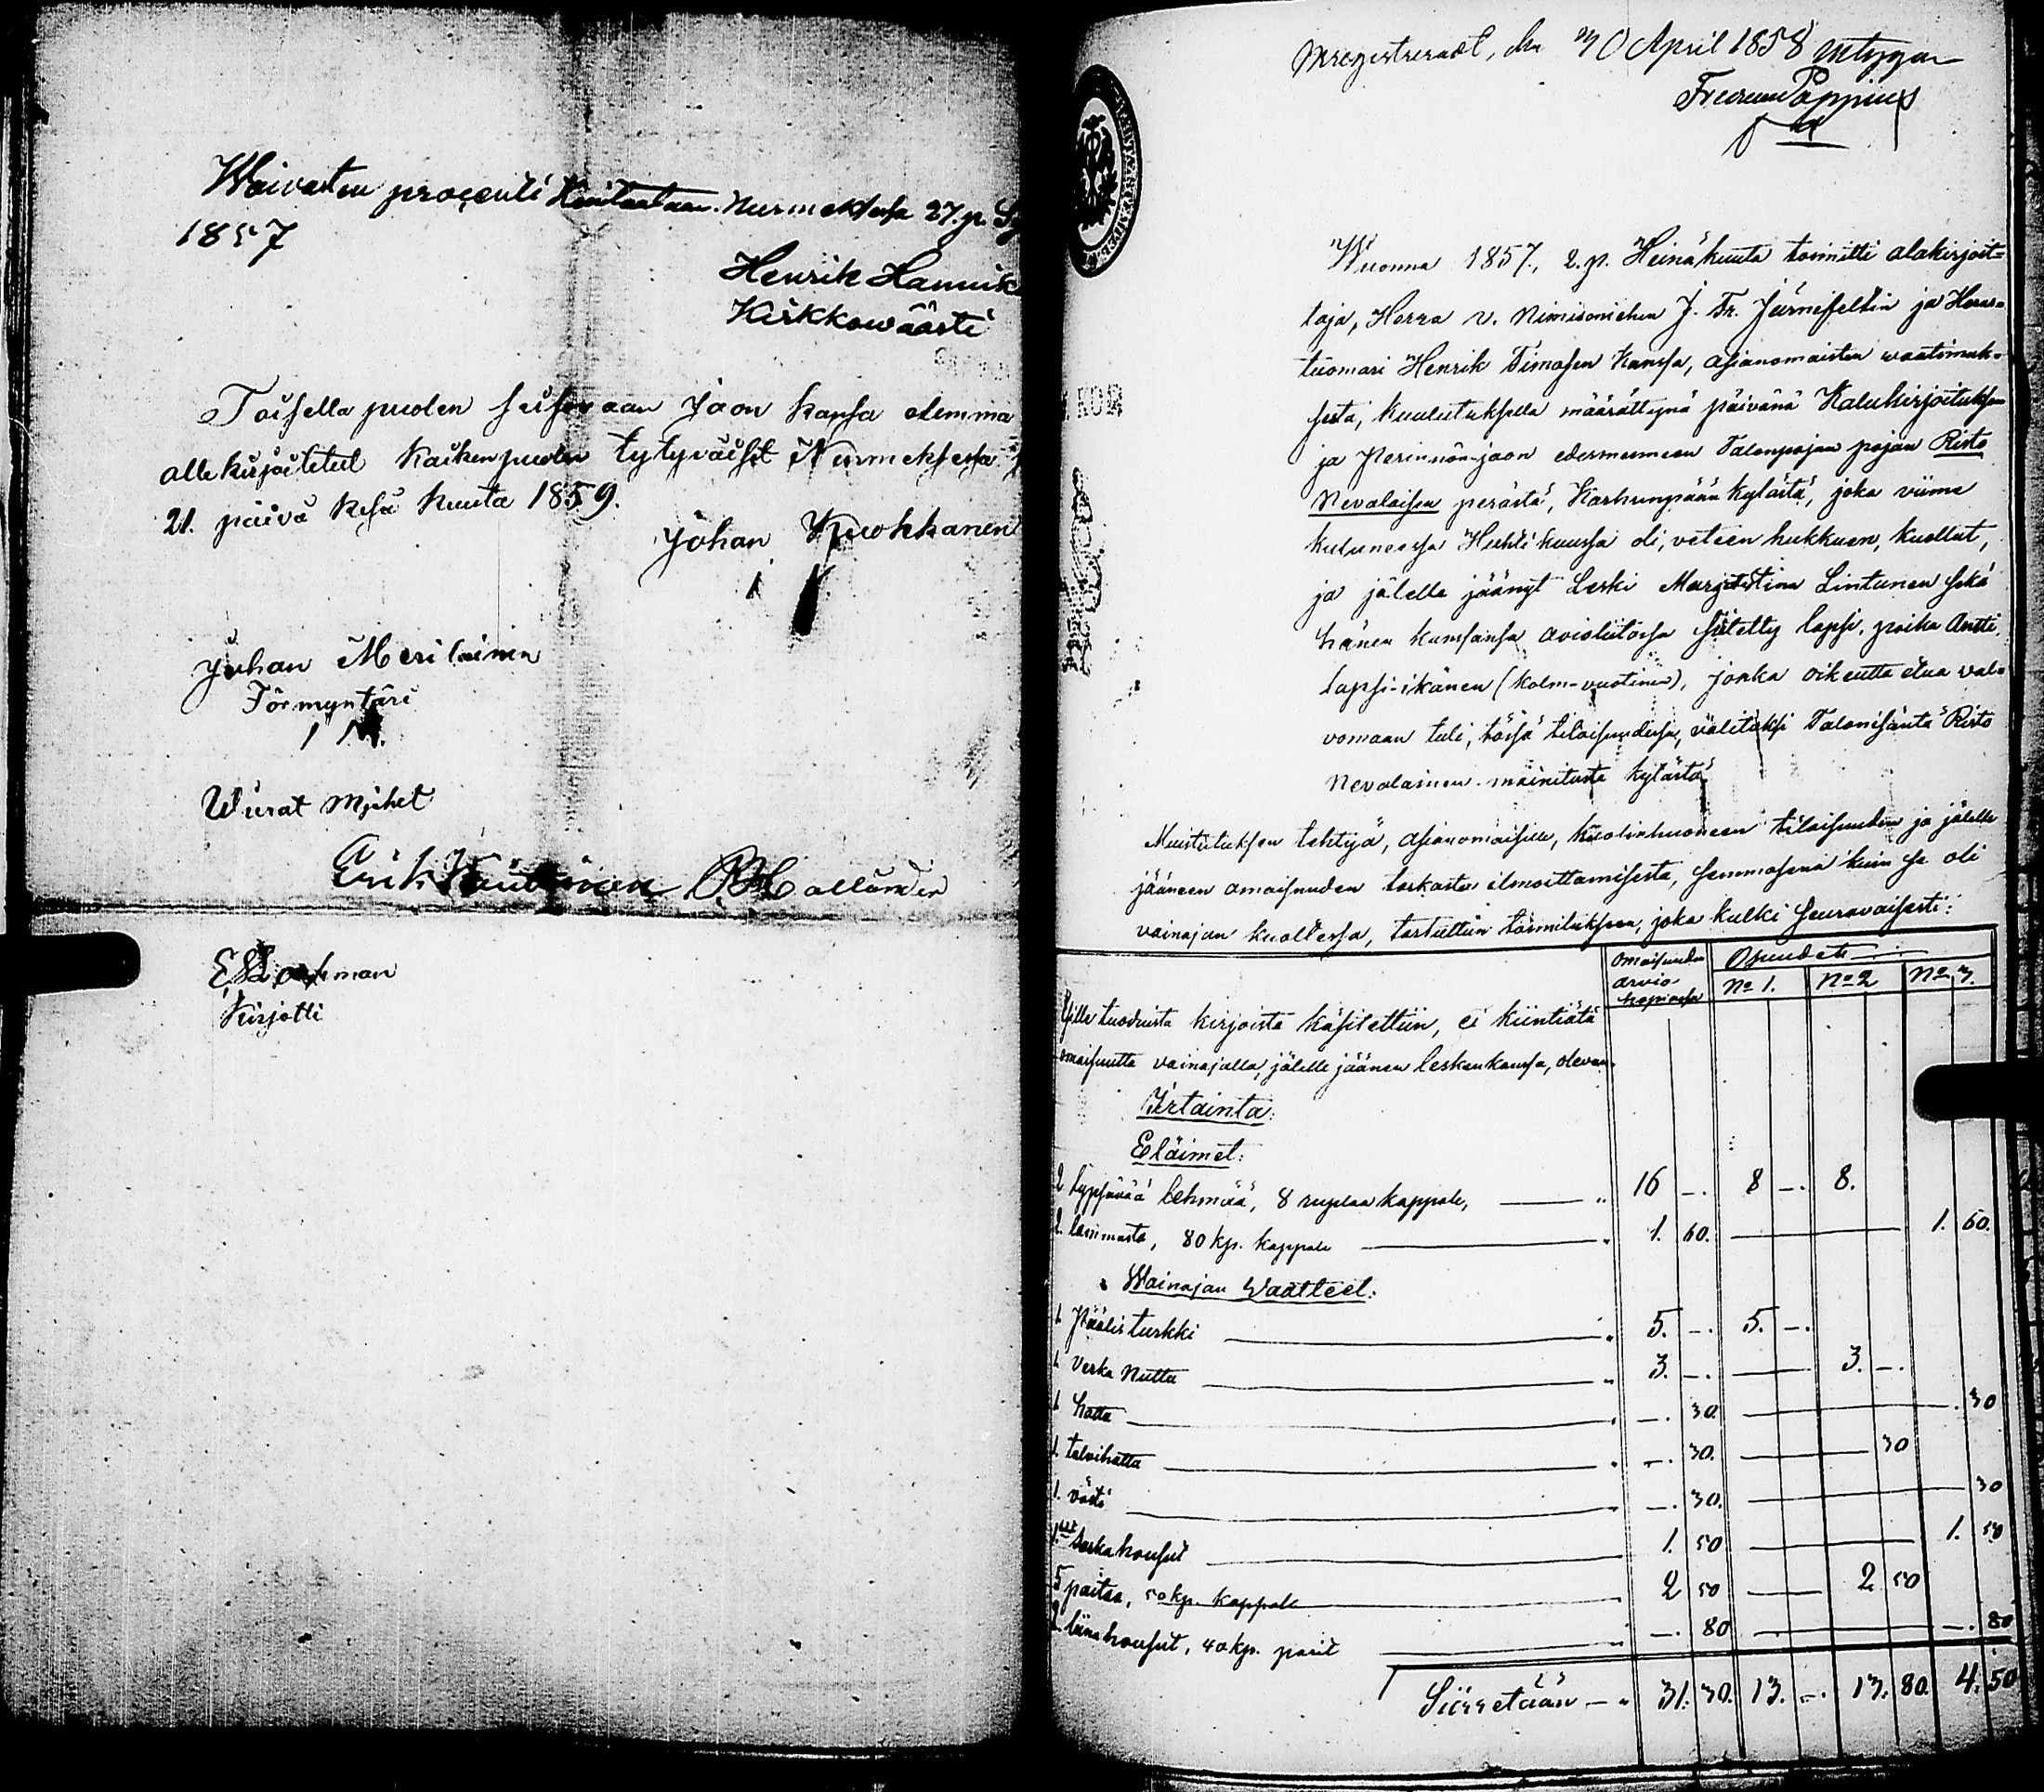 Waivasten procenti Kuitataan. Nurmeksessa 27. p.
1857
Henrik
Kirkkowäärti
Toisella puolen seisovaan Jaon kansa olemma
alle kirjoitetut kaiken puolen tytyväiset Nurmeksessa
21. päivä kesä kuuta 1859.
Johan Kuokkanen
Johan Meriläinen
Förmyntäri
Wierat Mjehet
Erik
E
Kirjotti
Inregistrerat, den 30 April 1858 intygar
Poppius
Wuonna 1857, 2. p. Heinäkuuta toimitti alakirjoit=
taja, Herra v. Nimismiehen J. Fr. Järnefeltin ja Heras=
tuomari Henrik Timosen kanssa, asianomaisten waatimuk=
sesta, kuulutuksella määrättynä päivänä Kalukirjoituksen
ja Perinnön-jaon edesmenneen Talonpojan pojan Risto
Nevalaisen perästä, Karhunpään kylästä, joka viime
kuluneessa Huhtikuussa oli, veteen hukkuen, kuollut,
ja jälelle jäänyt Leski Marjastiina Lintunen sekä
hänen kanssansa avioliitossa siitetty lapsi, poika Antti,
lapsi-ikänen (kolm-vuotinen), jonka oikeutta etua val=
vomaan tuli, tässä tilaisuudessa, välitäksi Talonisäntä Risto
Nevalainen mainitusta kylästä.
Muistutuksen tehtyä, asianomaisille, kuolinhuoneen tilaisuuden ja jälelle
jääneen omaisuuden tarkasta ilmoittamisesta, semmosena kuin se oli
vainajan kuollessa, tartuttiin toimitukseen, joka kulki seuraavaisesti:
Omaisuuden arvio hopiassa Osuudet
No 1. No 2 No 3.
Ylle tuoduista kirjoista käsitettiin, ei kiintiätä
omaisuutta vainajalla, jälelle jäänen lesken kanssa, olevan.
Irtainta:
Eläimet:
2 lypsävää lehmää, 8 ruplaa kappale, 16 —. 8 —. 8.
2. lammasta, 80 kp. kappale 1. 60. 1. 60.
Wainajan Waatteet:
1. Päälisturkki 5. —. 5. —.
1. Verka Nuttu 3. —. 3. —.
1 hattu —. 30. . 30
1. talvihattu —. 30. 30
1. västi —. 30. 30
1. sarkahousut 1. 50 1. 50
5 paitaa, 50 kp. kappale 2 50 2 50
2. liinahousut, 40 kp. parit —. 80 —. 80
Siirretään — 31. 30. 13. —. 13. 80. 4. 50